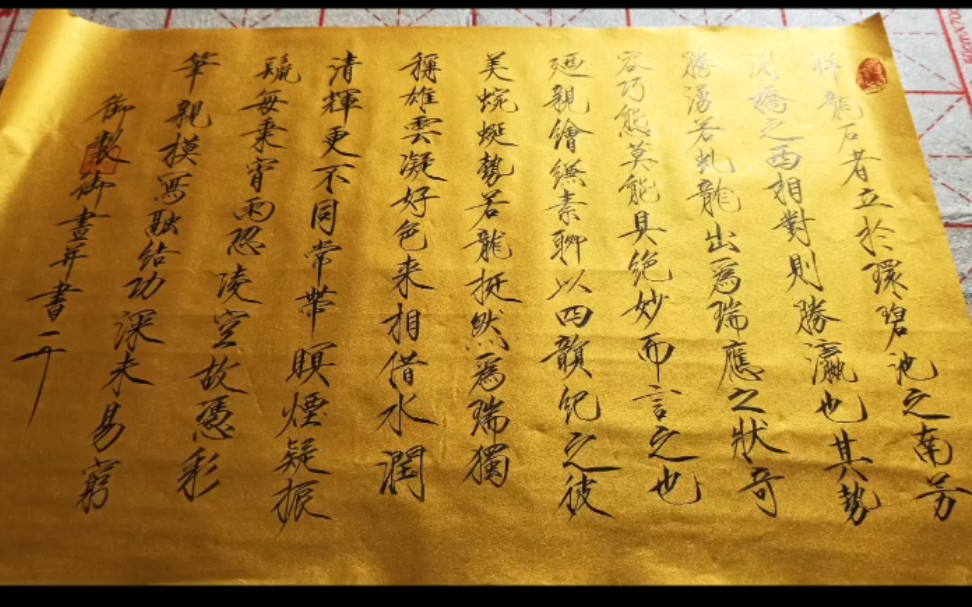 祥龍石者立於環碧池之南芳
洲橋之西相對則勝瀛也其勢
騰湧若虬龍出爲瑞應之狀奇
容巧態莫能具絶妙而言之也
廼親繪縑素聊以四韻紀之彼
美蜿蜒勢若龍挺然爲瑞獨
稱雄雲凝好色来相借水潤
清輝更不同常帶暝煙疑振
鬣每乘宵雨恐凌空故憑彩
筆親模寫融結功深未易窮
御製御畫并書